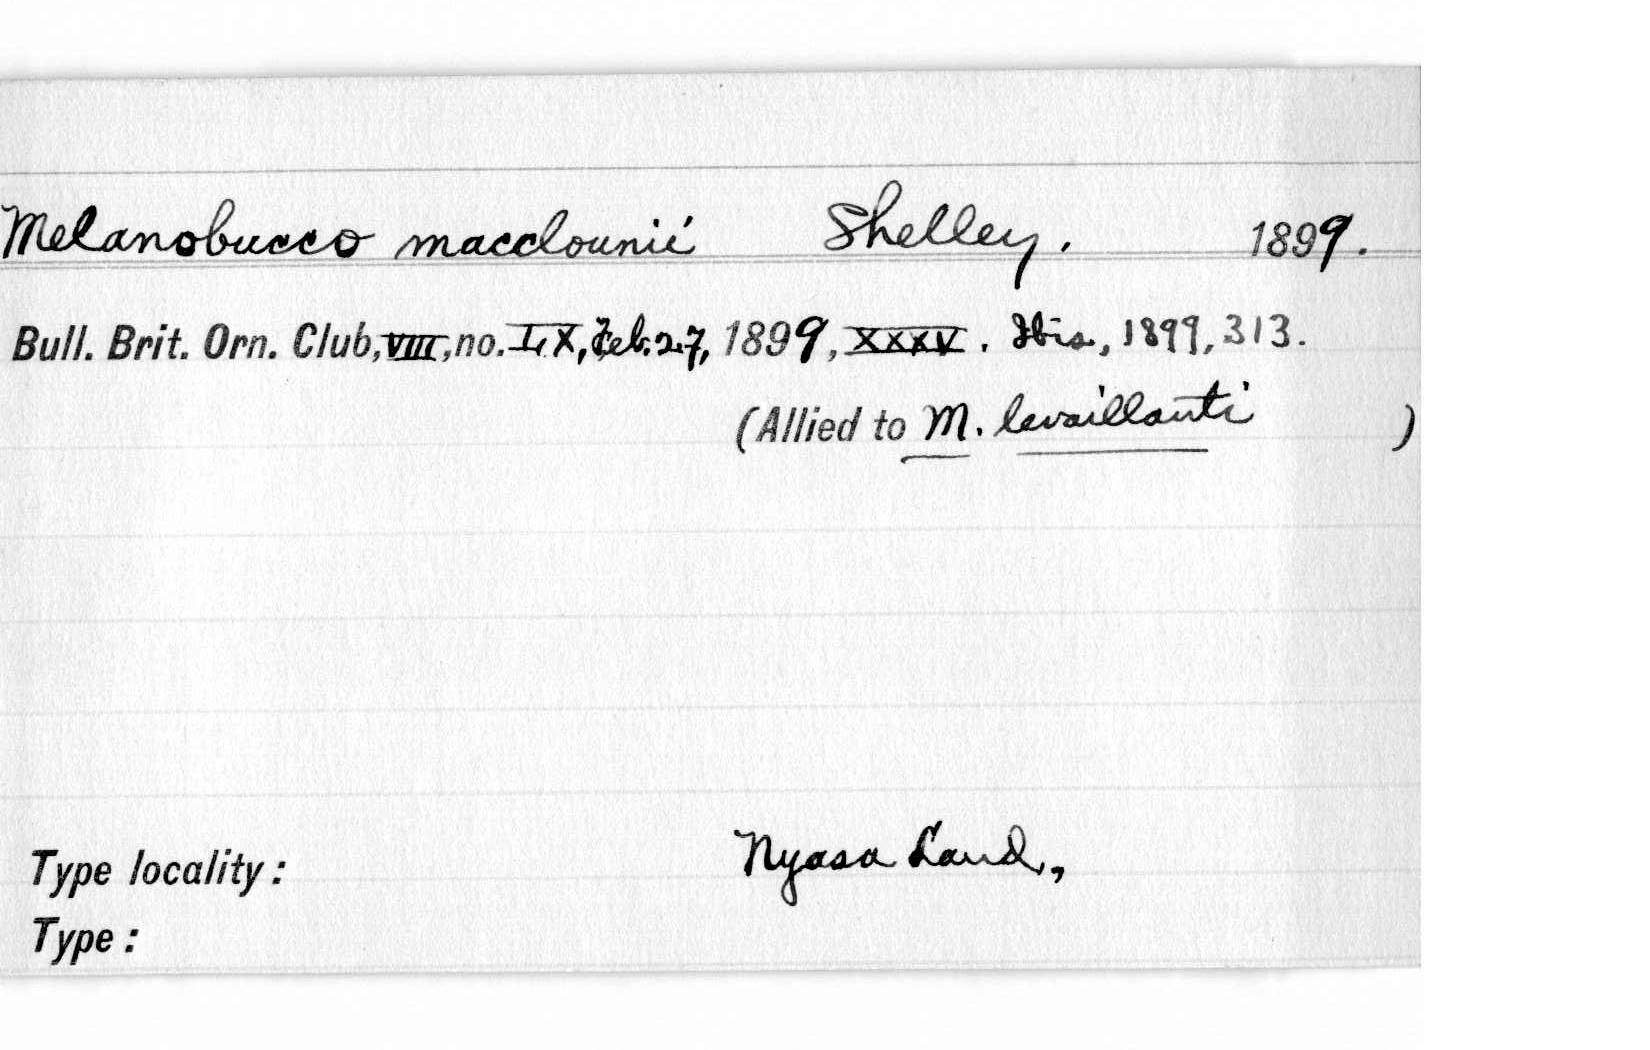 Melanobucco macclounii Shelley. 1899.
Bull. Brit. Orn. Club, VIII, no. LX, Feb. 27, 1899, XXXV. Ibis, 1899, 313.
(Allied to M. levaillanti )
Type locality: Nyasa Land,
Type: